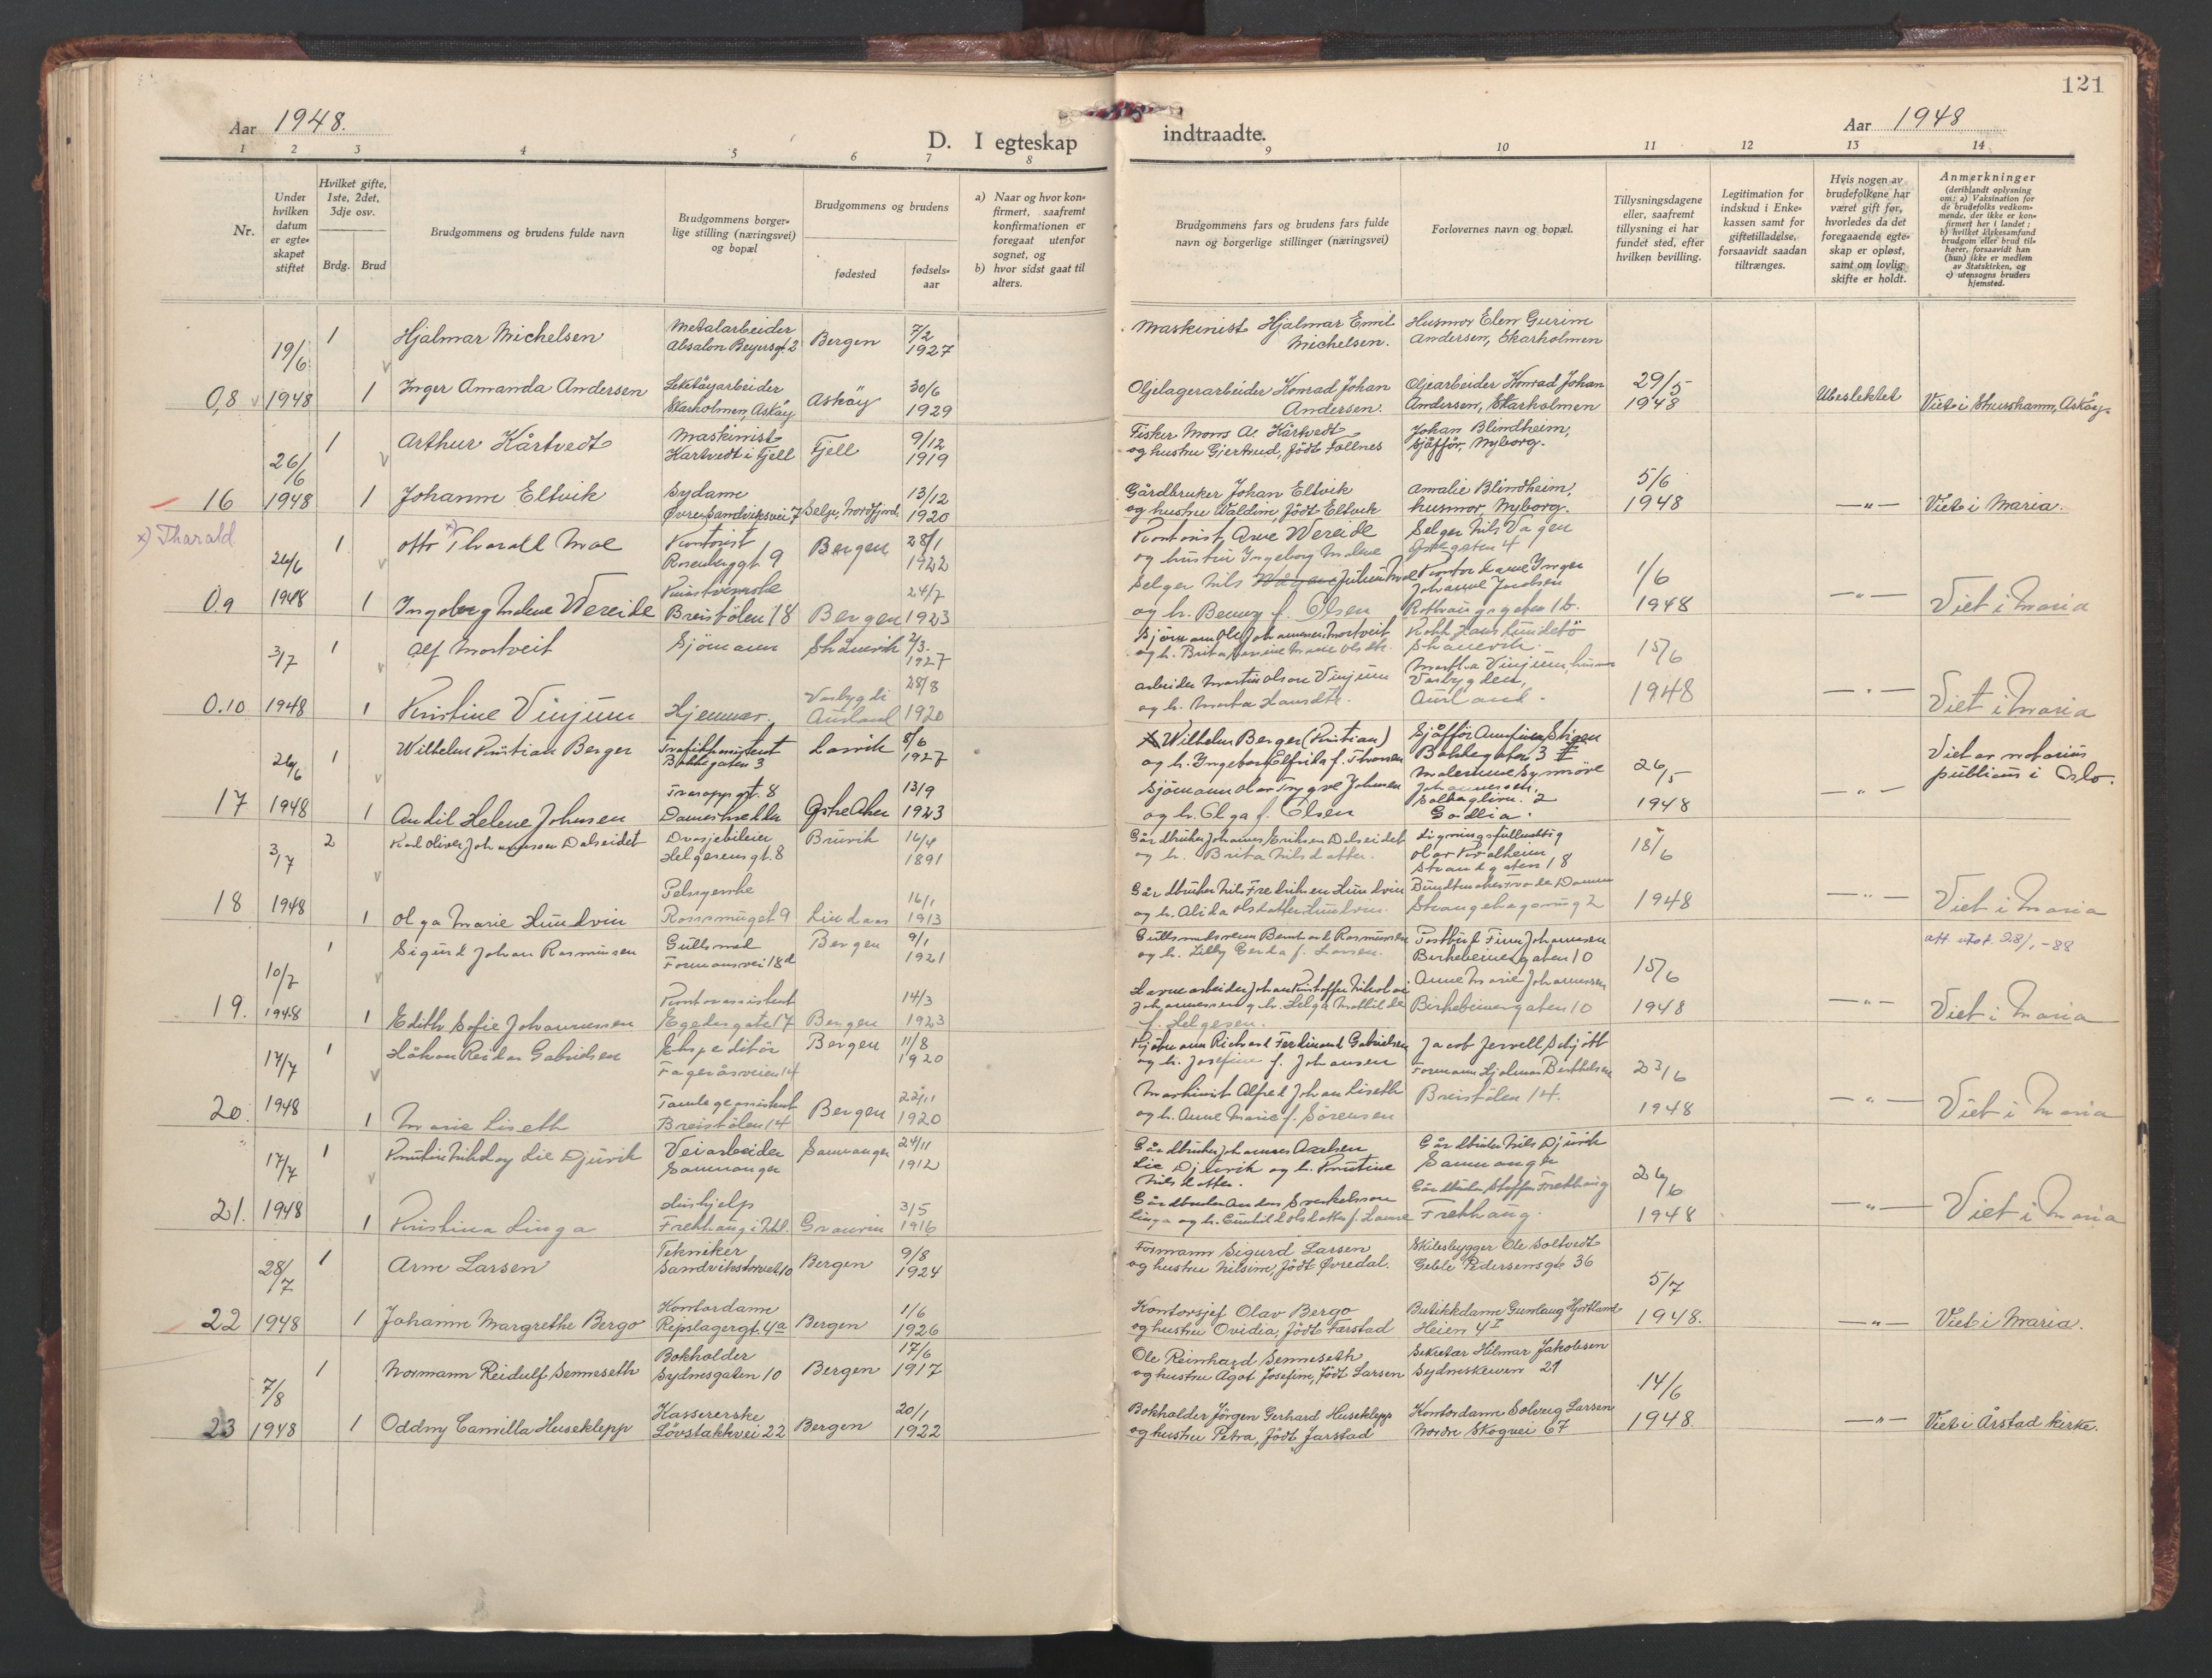 121
Aar 1948.
D. I egteskap
indtraadte.
Aar 1948
1 2 3 4 5 6 7 8 9 10 11 12 13 14
Nr.
Under hvilken datum er egteskapet stiftet
Hvilket gifte, 1ste, 2det, 3dje osv.
Brdg. Brud
Brudgommens og brudens fulde navn
Brudgommens borgerlige stilling (næringsvei) og bopæl
Brudgommens og brudens
fødested
fødselsaar
a) Naar og hvor konfirmert, saafremt konfirmationen er foregaat utenfor sognet, og
b) hvor sidst gaat til alters.
Brudgommens fars og brudens fars fulde navn og borgerlige stillinger (næringsvei)
Forlovernes navn og bopæl.
Tillysningsdagene eller, saafremt tillysning ei har fundet sted, efter hvilken bevilling.
Legitimation for indskud i Enkekassen samt for giftetilladelse, forsaavidt saadan tiltrænges.
Hvis nogen av brudefolkene har været gift før, hvorledes da det foregaaende egteskap er opløst, samt om lovlig skifte er holdt.
Anmerkninger
(deriblandt oplysning om: a) Vaksination for de brudefolks vedkommende, der ikke er konfirmert her i landet; b) hvilket kirkesamfund brudgom eller brud tilhører, forsaavidt han (hun) ikke er medlem av Statskirken, og c) utensogns bruders hjemsted.
0,8 19/6 1948
1 Hjalmar Michelsen Metalarbeider Absalon Beyersgt. 2 Bergen 7/2 1927
Maskinist Hjalmar Emil Michelsen. Husmor Elen Gurine Andersen, Skarholmen
1 Inger Amanda Andersen Leketøyarbeider Skarholmen, Askøy Askøy 30/6 1929
Oljelagerarbeider Konrad Johan Andersen. Oljearbeider Konrad Johan Andersen, Skarholmen 29/5 1948 Ubeslektet Viet i Strusshamn, Askøy.
16 26/6 1948
1 Arthur Kårtvedt Maskinist Kårtvedt i Fjell Fjell 9/12 1919
Fisker Mons A. Kårtvedt og hustru Gjertrud, født Follnes Johan Blindheim, sjåfør, Nyborg.
1 Johanne Eltvik Sydame Øvre Sandviksvei 7 Selje, Nordfjord 13/12 1920
Gårdbruker Johan Eltvik og hustru Waldine, født Eltvik Amalie Blindheim, husmor, Nyborg. 5/6 1948 — " — Viet i Maria.
x) Tharald
09 26/6 1948
1 Otto x) Tharall Moe Kontorist Rosenberggt. 9 Bergen 28/1 1922
Kontorist Arne Wereide og hustru Ingeborg Malene Selger Nils Vagen
1 Ingeborg Malene Wereide Breistølen 18 Bergen 24/7 1923
Selger Nils Julius Moe og h. Benny f. Olsen Kontordame Inger Johanne Jacobsen 1/6 1948 — " — Viet i Maria
0.10 3/7 1948
1 Alf Mortveit Sjømann Skånevik 2/3 1927
Sjømann Ole Johannesen Mortveit Skånevik.
1 Kristine Vinjum Hjemmev. Vasbygdi Aurland 28/8 1920
Arbeider Martin Olson Vinjum og h. Marta Martha Vinjum, Vasbygden, Aurland. 15/6 1948 — " — Viet i Maria
17 26/6 1948
1 Wilhelm Kristian Berger Trafikkassistent Bakkegaten 3 Larvik 8/6 1927
X Wilhelm Berger (Kristian) og h. Ingeborg Elfrida f. Thorsen Sjåfør Bakkegaten 3 II
1 Audil Helene Johnsen gt. 8 Østre Aker 13/9 1923
Sjømann Olav Trygve Johnsen og h. Olga f. Olsen 26/5 1948 — " — Viet av notarius publicus i Oslo.
18 3/7 1948
2 Karl Oliver Johannessen Dalseidet Drosjebileier Helgesensgt. 8 Bruvik 16/4 1891
Gårdbruker Johannes Eriksen Dalseidet og h. Brita Nilsdatter. Ligningsfullmektig Olav Strandgaten 18
1 Olga Marie Hundvin Pelsyerske 9 Lindaas 16/1 1913
Gårdbruker Nils Fredriksen Hundvin og h. Alida Olsdatter Hundvin. 18/6 1948 — " — Viet i Maria
19. 10/7 1948
1 Sigurd Johan Rasmussen Gullsmed Formannsvei 18d Bergen 9/1 1921
Gullsmedsvenn Bernhard Rasmussen og h. Lilly Gerda f. Larsen. Postbud Finn Johannesen Birkebeinergaten 10 att. utst. 28/1-88
1 Edith Sofie Johannessen Kontorassistent Egedesgate 17 Bergen 14/3 1923
Havnearbeider Johan Kristoffer Nikolai Johannessen og h. Helga Mathilde f. Helgesen. Anne Marie Johannessen Birkebeinergaten 10 15/6 1948 — " — Viet i Maria
20. 17/7 1948
1 Håkon Reidar Gabrielsen Ekspeditør Fageråsveien 14 Bergen 11/8 1920
Sjømann Richard Ferdinand Gabrielsen og h. Josefine f. Johansen Jacob Jervell Schjøtt
1 Marie Liseth Tannlegeassistent Breistølen 14 Bergen 22/11 1920
Maskinist Alfred Johan Liseth og h. Anne Marie f. Sørensen Formann Hjalmar Berthelsen Breistølen 14. 23/6 1948 — " — Viet i Maria
21. 17/7 1948
1 Kristen Nikolay Lie Djuvik Veiarbeider Samnanger Samnanger 24/11 1912
Gårdbruker Johannes Axelsen Lie Djuvik og h. Kristine Nilsdatter. Gårdbruker Nils Djuvik Samnanger
1 Kristina Linga Hushjelp Frekhaug i Granvin 3/5 1916
Gårdbruker Anders Linga og h. Gårdbruker Steffen Frekhaug Frekhaug. 26/6 1948 — " — Viet i Maria
22 28/7 1948
1 Arne Larsen Tekniker Sandvikstorvet 10 Bergen 9/8 1924
Formann Sigurd Larsen og hustru Nilsine, født Øvredal. Skibsbygger Ole Soltvedt Geble Pedersensgt 36
1 Johanne Margrethe Bergo Kontordame Repslagergt. 4a Bergen 1/6 1926
Kontorsjef Olav Bergo og hustru Ovidia, født Farstad Butikkdame Gunlaug Hjortland Heien 4 I 5/7 1948. — " — Viet i Maria.
23 7/8 1948
1 Normann Reidulf Senneseth Bokholder Sydnesgaten 10 Bergen 17/6 1917
Ole Reinhard Senneseth og hustru Ågot Josefine, født Larsen Sekretær Hilmar Jakobsen Sydneskleiven 21
1 Oddny Camilla Huseklepp Kassererske Løvstakkvei 22 Bergen 20/1 1922
Bokholder Jørgen Gerhard Huseklepp og hustru Petra, født Jarstad Kontordame Solveig Larsen Nordre Skogvei 67 14/6 1948. — " — Viet i Årstad kirke.